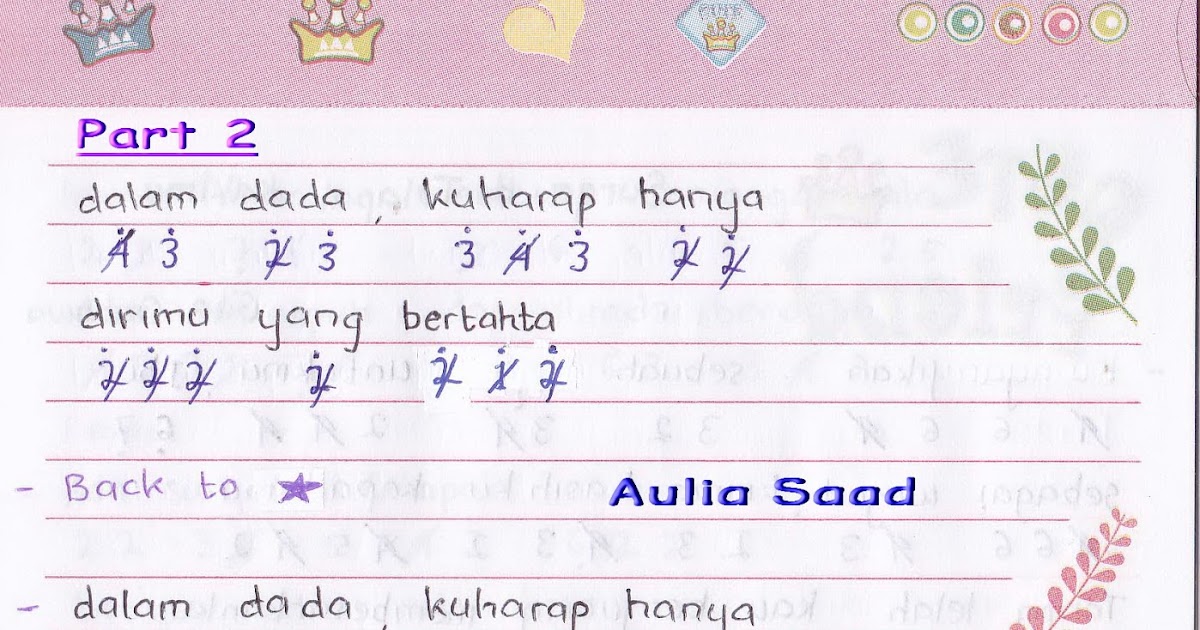 Part 2
dalam dada, kuharap hanya
4̸̇ 3̇ 2̸̇ 3̇ 3̇ 4̸̇ 3̇ 2̸̇ 2̸̇
dirimu yang bertahta
2̸̇ 2̸̇ 2̸̇ 2̸̇ 2̸̇ 1̸̇ 2̸̇
- Back to ★
Aulia Saad
- dalam dada, kuharap hanya